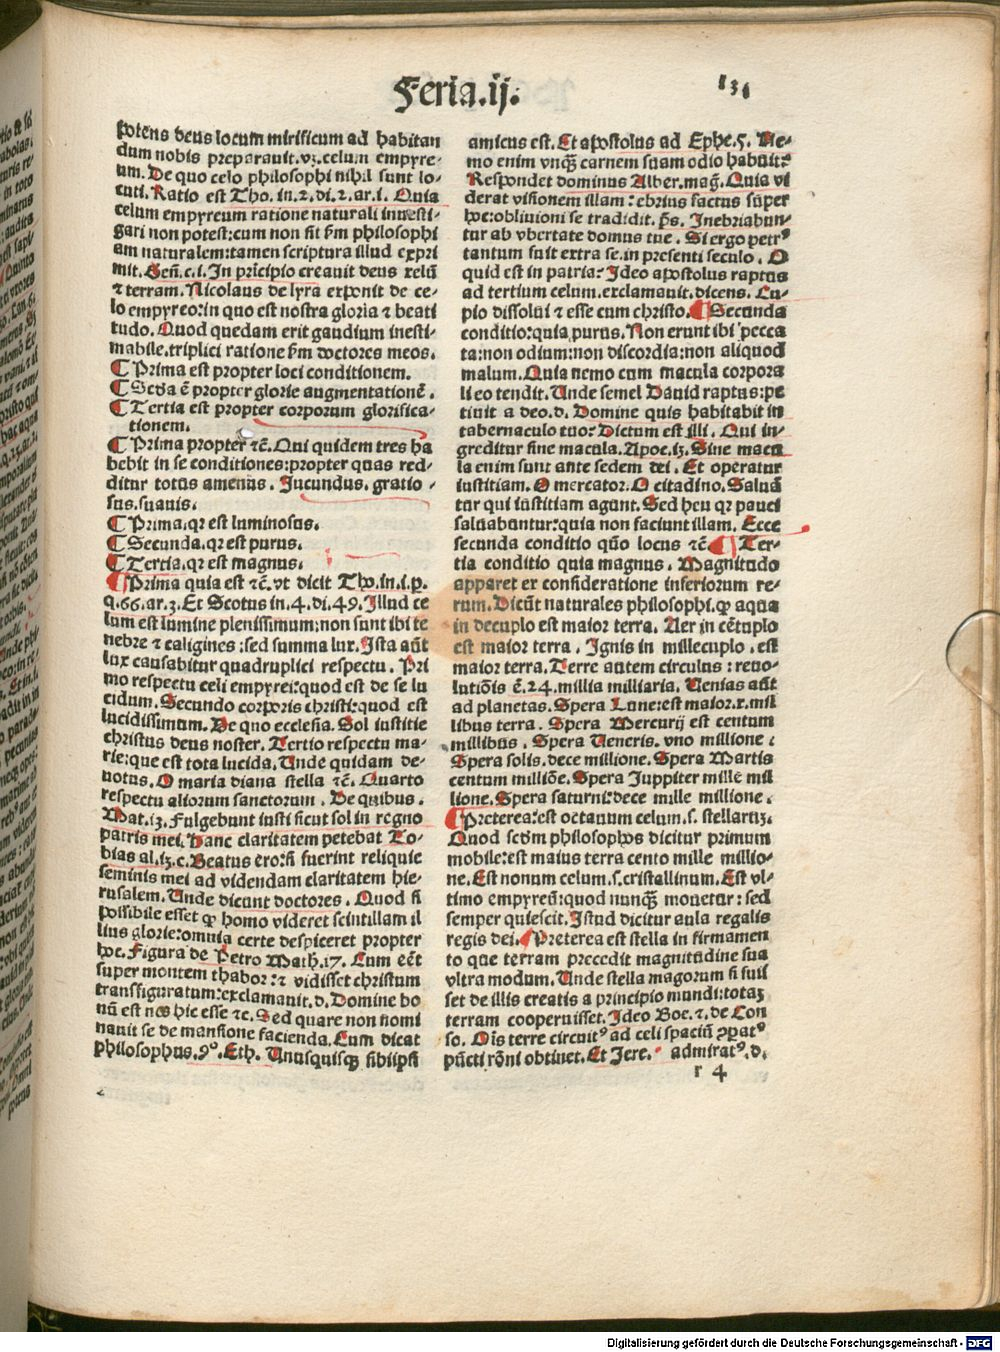 Feria.ij.
131
potens deus locum mirificum ad habitan
dum nobis preparauit.vz.celum empyre-
um. De quo celo philosophi nihil sunt lo-
cuti. Ratio est Tho. in.2.di.2.ar.i. Quia
celum empyreum ratione naturali inuesti-
gari non potest:cum non sit ẞm philosophi
am naturalem:tamen scriptura illud expri
mit. Geñ.c.i. In pricipio creauit deus xelũ
⁊ terram. Nicolaus de lyra exponit de ce-
lo empyreo:in quo est nostra gloria ⁊ beati
tudo. Quod quedam erit gaudium inesti-
mabile.triplici ratione ẞm doctores meos.
¶ Prima est propter loci conditionem.
¶ Scđa ē propter glorie augmentationē.
¶ Tertia est propter corporum glorifica-
tionem.
¶ Prima propter ⁊c̃. Qui quidem tres ha
bebit in se conditiones:propter quas red-
ditur totus amenus. Jucundus. gratio-
sus.suauis.
¶ Prima.qꝛ est luminosus.
¶ Secunda.qꝛ est purus.
¶ Tertia.qꝛ est magnus.
¶ Prima quia est ⁊c̃. vt dicit Tho.in.i.p.
q.66.ar.3. Et Scotus in.4.di.49. Illud ce
lum est lumine plenissimum:non sunt ibi te
nebre ⁊ caligines:sed summa lux. Ista aũt
lux causabitur quadruplici respectu. Pri
mo respectu celi empyrei:quod est de se lu
cidum. Secundo corporis christi:quod est
lucidissimum. De quo ecclesia. Sol iustitie
christus deus noster. Tertio respectu ma-
rie:que est tota lucida. Unde quidam de-
uotus. O maria diana stella ⁊c̃. Quarto
respectu aliorum sanctorum. De quibus.
Mat.13. Fulgebunt iusti sicut sol in regno
patris mei. Hanc claritatem petebat To-
bias al.13.c. Beatus ero:si fuerint reliquie
seminis mei ad videndam claritatem hie-
rusalem. Unde dicunt doctores. Quod si
possibile esset ꝙ homo videret scintillam il
lius glorie:omnia certe despiceret propter
hoc. Figura de Petro Math.17. Cum eēt
super montem thabor:⁊ vidisset christum
transfiguratum:exclamauit.d. Domine bo
nũ est nos hic esse ⁊c. Sed quare non nomi
nauit se de mansione facienda. Cum dicat
philosophus.9°. Eth. Unusquisqꝫ sibiipsi
amicus est. Et apostolus ad Ephe.5. Ne-
mo enim vnqꝫ̃ carnem suam odio habuit?
Respondet dominus Alber.mag̃. Quia vi
derat visionem illam:ebrius factus super
hoc:obliuioni se tradidit. p̃s. Inebriabun-
tur ab vbertate domus tue. Si ergo petrꝰ
tantum fuit extra se.in presenti seculo. O
quid est in patria? Ideo apostolus raptus
ad tertium celum.exclamauit.dicens. Cu-
pio dissolui ⁊ esse cum christo. ¶ Secunda
conditio:quia purus. Non erunt ibi pecca
ta:non odium:non discordia:non aliquod
malum. Quia nemo cum macula corpora
li eo tendit. Unde semel Dauid raptus:pe
tiuit a deo.d. Domine quis habitabit in
tabernaculo tuo? Dictum est illi. Qui in-
greditur sine macula. Apoc.13. Sine macu
la enim sunt ante sedem dei. Et operatur
iustitiam. O mercator. O citadino. Saluã
tur qui iustitiam agunt. Sed heu qꝛ pauci
saluabuntur:quia non faciunt illam. Ecce
secunda conditio quo locus ⁊c̃. ¶ Ter-
tia conditio quia magnus. Magnitudo
apparet ex consideratione inferiorum re-
rum. Dicũt naturales philosophi.ꝙ aqua
in decuplo est maior terra. Aer in cẽtuplo
est maior terra. Ignis in millecuplo.est
maior terra. Terre autem circulus:reuo-
lutiõis ē.24.millia milliaria. Uenias aũt
ad planetas. Spera Lune:est maior.x.mil
libus terra. Spera Mercurij est centum
millibus. Spera Ueneris.vno millione:
Spera solis.dece millione. Spera Martis
centum milliõe. Spera Juppiter mille mil
lione. Spera saturni:dece mille millione.
¶ Preterea:est octauum celum.s. stellarũ.
Quod scđm philosophos dicitur primum
mobile:est maius terra cento mille millio-
ne. Est nonum celum.s.cristallinum. Est vl-
timo empyreũ:quod nunqꝫ̃ mouetur:sed
semper quiescit. Istud dicitur aula regalis
regis dei. ¶ Preterea est stella in firmamen
to que terram precedit magnitudine sua
vltra modum. Unde stella magorum si fuis
set de illis creatis a principio mundi:totaꝫ
terram cooperuisset. Ideo Boe.2. de Con
so. Oĩs terre circuitꝰ ad celi spaciũ ꝓpatꝰ
pũcti rõni obtinet. Et Iere. admiratꝰ.d.
r 4
Digitalisierung gefördert durch die Deutsche Forschungsgemeinschaft - DFG